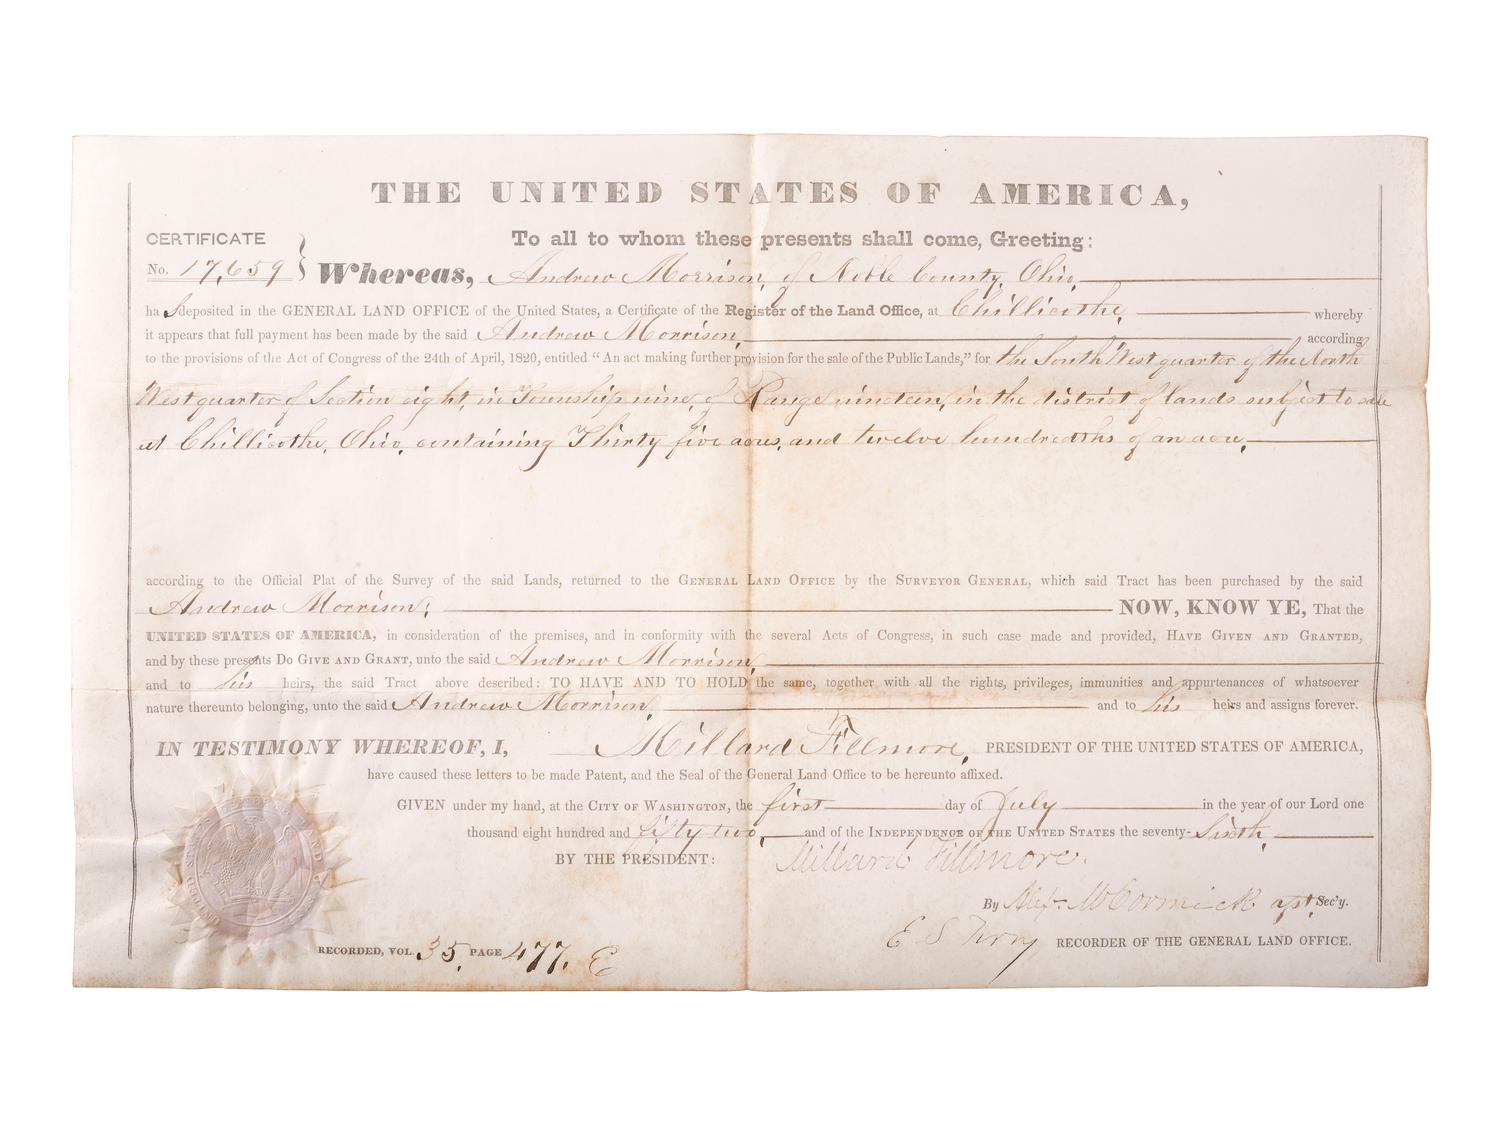 THE UNITED STATES OF AMERICA,
CERTIFICATE
No. 17,659
To all to whom these presents shall come, Greeting:
Whereas, Andrew Morrison, of Noble County, Ohio,
ha s deposited in the GENERAL LAND OFFICE of the United States, a Certificate of the Register of the Land Office, at Chillicothe, whereby
it appears that full payment has been made by the said Andrew Morrison, according
to the provisions of the Act of Congress of the 24th of April, 1820, entitled “An act making further provision for the sale of the Public Lands,” for the South West quarter of the North
West quarter of Section eight, in Township nine, of Range nineteen, in the district of lands subject to sale
at Chillicothe, Ohio, containing Thirty five acres, and twelve hundredths of an acre,
according to the Official Plat of the Survey of the said Lands, returned to the GENERAL LAND OFFICE by the SURVEYOR GENERAL, which said Tract has been purchased by the said
Andrew Morrison; NOW, KNOW YE, That the
UNITED STATES OF AMERICA, in consideration of the premises, and in conformity with the several Acts of Congress, in such case made and provided, HAVE GIVEN AND GRANTED,
and by these presents DO GIVE AND GRANT, unto the said Andrew Morrison,
and to his heirs, the said Tract above described: TO HAVE AND TO HOLD the same, together with all the rights, privileges, immunities and appurtenances of whatsoever
nature thereunto belonging, unto the said Andrew Morrison, and to his heirs and assigns forever.
IN TESTIMONY WHEREOF, I, Millard Fillmore, PRESIDENT OF THE UNITED STATES OF AMERICA,
have caused these letters to be made Patent, and the Seal of the General Land Office to be hereunto affixed.
GIVEN under my hand, at the CITY OF WASHINGTON, the first day of July in the year of our Lord one
thousand eight hundred and fifty two, and of the INDEPENDENCE OF THE UNITED STATES the seventy-sixth,
BY THE PRESIDENT: Millard Fillmore.
By Alex McCormick asst Sec'y.
E S Terry RECORDER OF THE GENERAL LAND OFFICE.
RECORDED, VOL. 35, PAGE 477. E